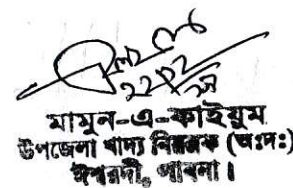 ২২/১২
মামুন-এ-কাইয়ুম
উপজেলা খাদ্য নিয়ন্ত্রক (অঃদঃ)
ঈশ্বরদী, পাবনা।